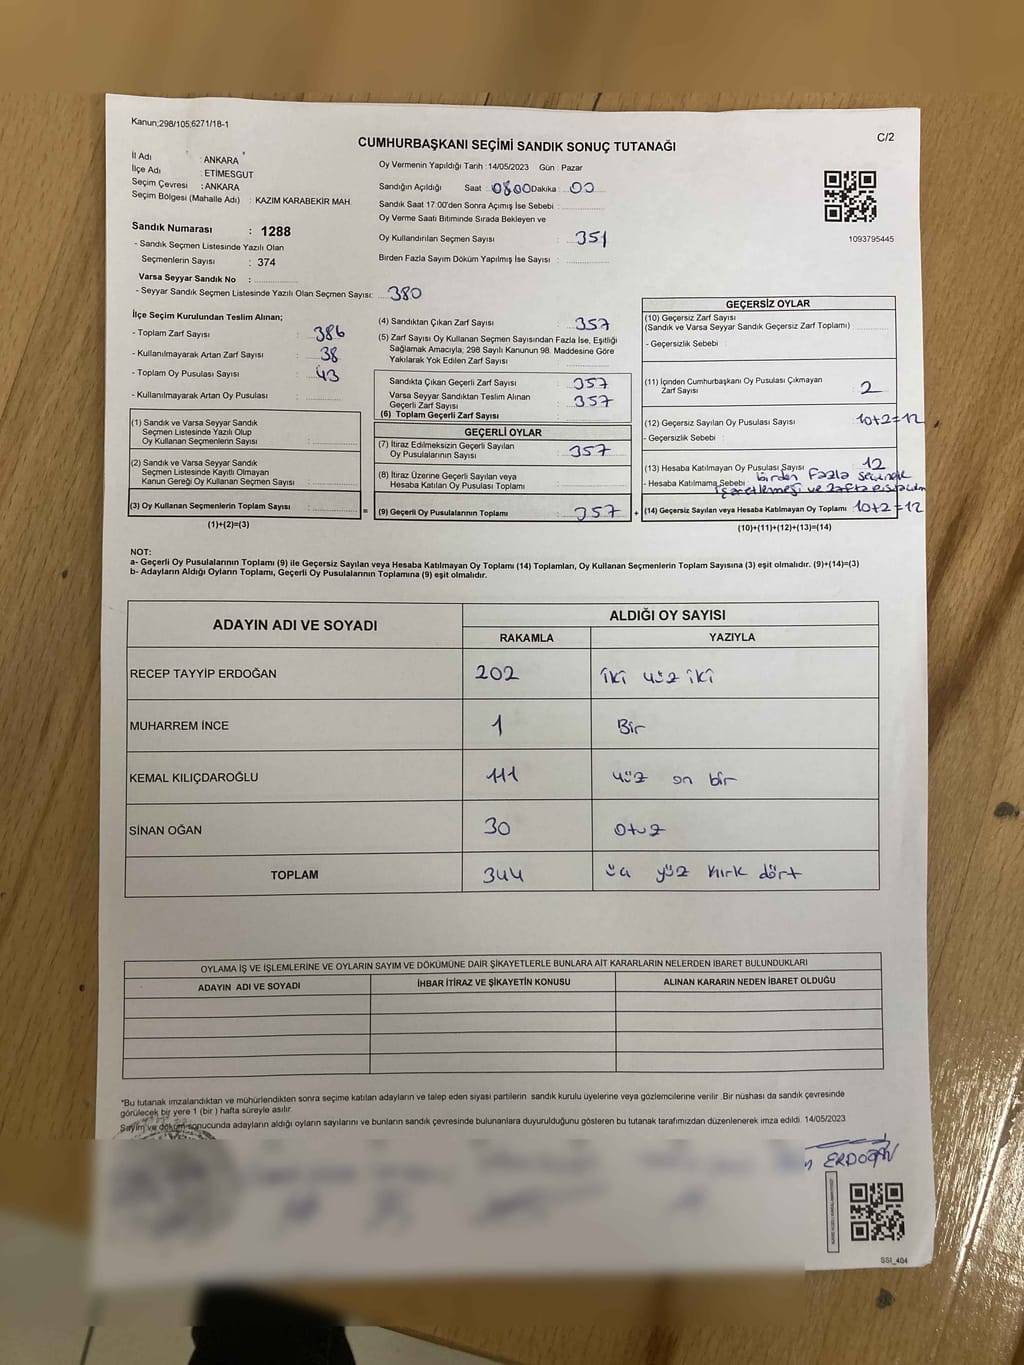 Kanun;298/105,6271/18-1
C/2
CUMHURBAŞKANI SEÇİMİ SANDIK SONUÇ TUTANAĞI
İl Adı : ANKARA
İlçe Adı : ETİMESGUT
Seçim Çevresi : ANKARA
Seçim Bölgesi (Mahalle Adı) : KAZIM KARABEKİR MAH.
Sandık Numarası : 1288
- Sandık Seçmen Listesinde Yazılı Olan
Seçmenlerin Sayısı : 374
Varsa Seyyar Sandık No :
- Seyyar Sandık Seçmen Listesinde Yazılı Olan Seçmen Sayısı: 380
Oy Vermenin Yapıldığı Tarih :14/05/2023 Gün : Pazar
Sandığın Açıldığı Saat : 0800 Dakika : 00
Sandık Saat 17:00'den Sonra Açımış İse Sebebi :
Oy Verme Saati Bitiminde Sırada Bekleyen ve
Oy Kullandırılan Seçmen Sayısı : 351
Birden Fazla Sayım Döküm Yapılmış İse Sayısı :
1093795445
İlçe Seçim Kurulundan Teslim Alınan;
- Toplam Zarf Sayısı : 386
- Kullanılmayarak Artan Zarf Sayısı : 38
- Toplam Oy Pusulası Sayısı : 43
- Kullanılmayarak Artan Oy Pusulası :
(1) Sandık ve Varsa Seyyar Sandık
Seçmen Listesinde Yazılı Olup
Oy Kullanan Seçmenlerin Sayısı :
(2) Sandık ve Varsa Seyyar Sandık
Seçmen Listesinde Kayıtlı Olmayan
Kanun Gereği Oy Kullanan Seçmen Sayısı :
(3) Oy Kullanan Seçmenlerin Toplam Sayısı : =
(1)+(2)=(3)
(4) Sandıktan Çıkan Zarf Sayısı : 357
(5) Zarf Sayısı Oy Kullanan Seçmen Sayısından Fazla İse, Eşitliği
Sağlamak Amacıyla, 298 Sayılı Kanunun 98. Maddesine Göre
Yakılarak Yok Edilen Zarf Sayısı :
Sandıkta Çıkan Geçerli Zarf Sayısı : 357
Varsa Seyyar Sandıktan Teslim Alınan
Geçerli Zarf Sayısı : 357
(6) Toplam Geçerli Zarf Sayısı :
GEÇERLİ OYLAR
(7) İtiraz Edilmeksizin Geçerli Sayılan
Oy Pusulalarının Sayısı : 357
(8) İtiraz Üzerine Geçerli Sayılan veya
Hesaba Katılan Oy Pusulası Toplamı :
(9) Geçerli Oy Pusulalarının Toplamı : 357 +
GEÇERSİZ OYLAR
(10) Geçersiz Zarf Sayısı
(Sandık ve Varsa Seyyar Sandık Geçersiz Zarf Toplamı) :
- Geçersizlik Sebebi :
(11) İçinden Cumhurbaşkanı Oy Pusulası Çıkmayan
Zarf Sayısı : 2
(12) Geçersiz Sayılan Oy Pusulası Sayısı : 10+2=12
- Geçersizlik Sebebi :
(13) Hesaba Katılmayan Oy Pusulası Sayısı : 12
- Hesaba Katılmama Sebebi : birden fazla seçenek
işaretlemesi ve zafta
(14) Geçersiz Sayılan veya Hesaba Katılmayan Oy Toplamı 10+2=12
(10)+(11)+(12)+(13)=(14)
NOT:
a- Geçerli Oy Pusulalarının Toplamı (9) ile Geçersiz Sayılan veya Hesaba Katılmayan Oy Toplamı (14) Toplamları, Oy Kullanan Seçmenlerin Toplam Sayısına (3) eşit olmalıdır. (9)+(14)=(3)
b- Adayların Aldığı Oyların Toplamı, Geçerli Oy Pusulalarının Toplamına (9) eşit olmalıdır.
ADAYIN ADI VE SOYADI ALDIĞI OY SAYISI
RAKAMLA YAZIYLA
RECEP TAYYİP ERDOĞAN 202 iki yüz iki
MUHARREM İNCE 1 Bir
KEMAL KILIÇDAROĞLU 111 yüz on bir
SİNAN OĞAN 30 otuz
TOPLAM 344 yüz kırk dört
OYLAMA İŞ VE İŞLEMLERİNE VE OYLARIN SAYIM VE DÖKÜMÜNE DAİR ŞİKAYETLERLE BUNLARA AİT KARARLARIN NELERDEN İBARET BULUNDUKLARI
ADAYIN ADI VE SOYADI İHBAR İTİRAZ VE ŞİKAYETİN KONUSU ALINAN KARARIN NEDEN İBARET OLDUĞU
*Bu tutanak imzalandıktan ve mühürlendikten sonra seçime katılan adayların ve talep eden siyasi partilerin sandık kurulu üyelerine veya gözlemcilerine verilir .Bir nüshası da sandık çevresinde
görülecek bir yere 1 (bir ) hafta süreyle asılır.
Sayım ve döküm sonucunda adayların aldığı oyların sayılarını ve bunların sandık çevresinde bulunanlara duyurulduğunu gösteren bu tutanak tarafımızdan düzenlenerek imza edildi. 14/05/2023
ERDOĞAN
SSI_404